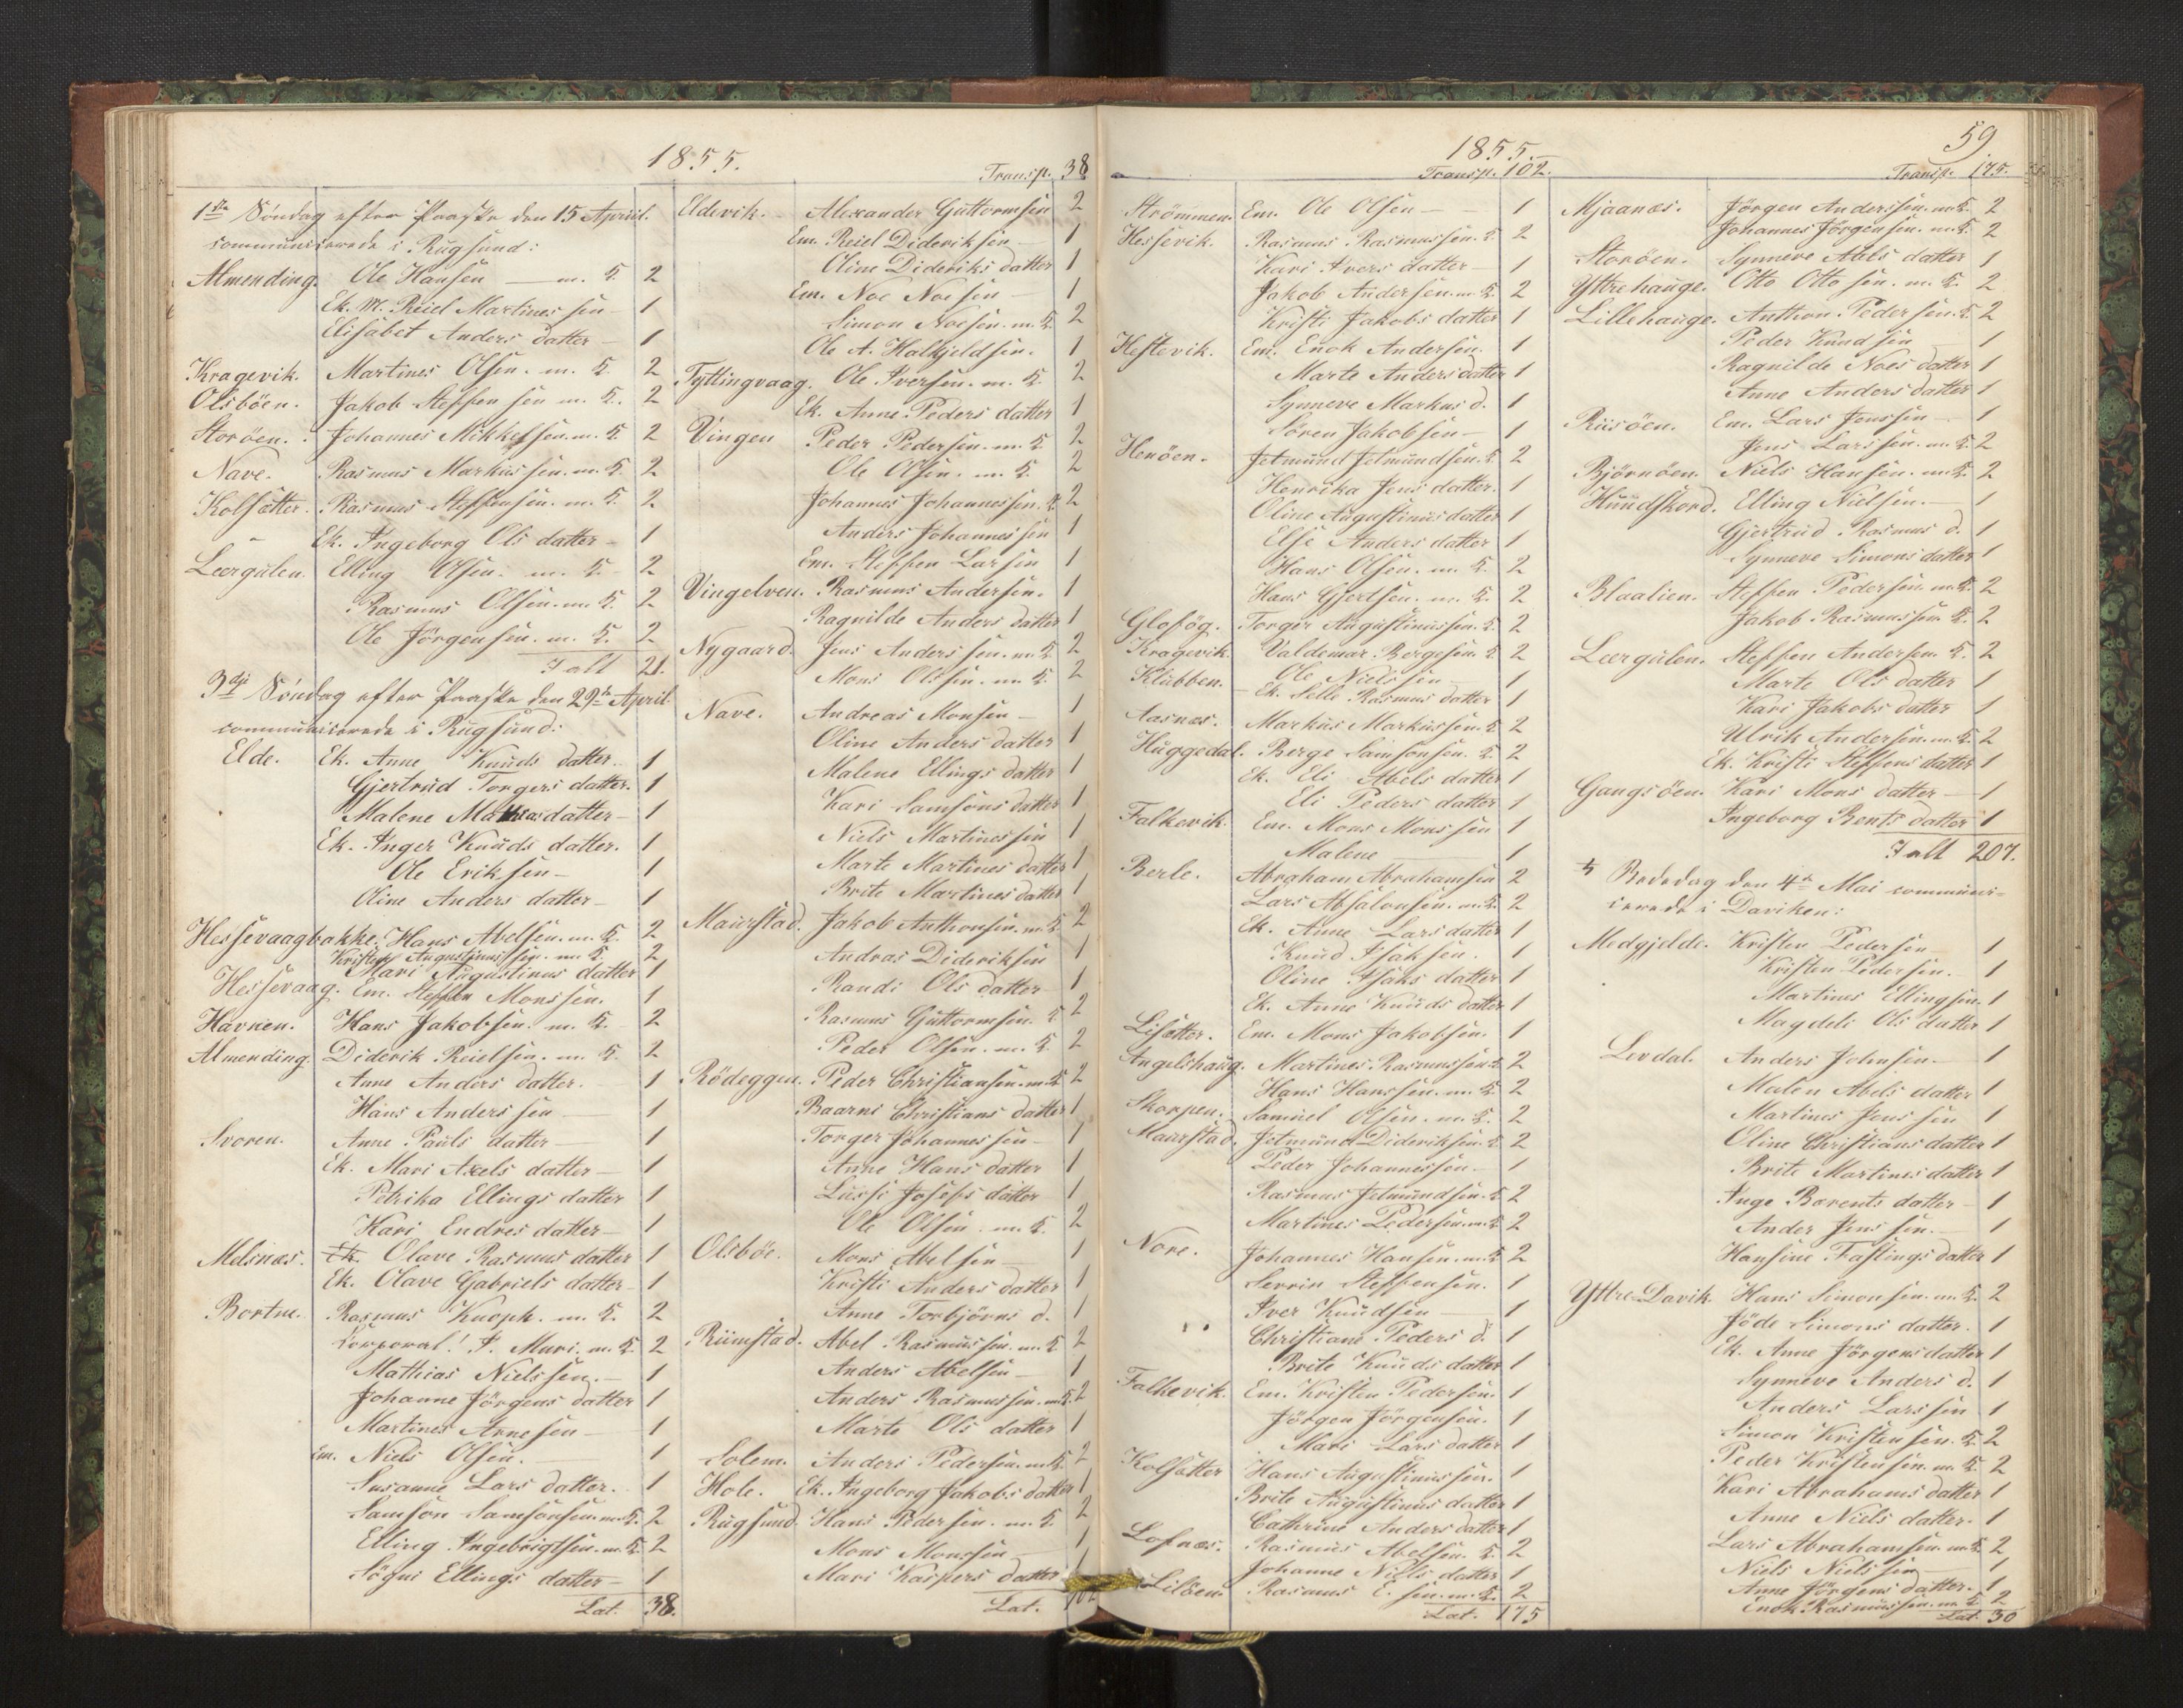 1855.
Transp. 38
1ste Söndag efter Paaske den 15 April.
communicerede i Rugsund:
Almending. Ole Hansen — m. K. 2
Ek. M. Reiel Martines sen 1
Elisabet Anders datter — 1
Kragevik. Martines Olsen. m. K. 2
Olsböen. Jakob Steffen sen m. K. 2
Storöen. Johannes Mikkelsen. m. K. 2
Nave. Rasmus Markussen. m. K. 2
Kolsætter. Rasmus Steffensen. m. K. 2
Ek. Ingeborg Ols datter — 1
Leergulen. Elling Olsen. m. K. 2
Rasmus Olsen. m. K. 2
Ole Jörgensen. m. K. 2
I alt 21.
3die Söndag efter Paaske den 29de April
communicerede i Rugsund:
Elde. Ek. Anne Knuds datter. 1
Gjertrud Torgers datter. 1
Malene Mathias datter — 1
Ek. Inger Knuds datter. 1
Ole Eriksen — 1
Oline Anders datter — 1
Hessevaagbakke. Hans Abelsen. m. K. 2
Kristen Augustinussen. m. K. 2
Mari Augustinus datter 1
Hessevaag. Em. Steffen Monssen. 1
Havnen. Hans Jakobsen. m. K. 2
Almending. Diderik Reielsen. m. K. 2
Anne Anders datter. 1
Hans Anders sen — 1
Svoren. Anne Pauls datter — 1
Ek. Mari Axels datter — 1
Petrika Ellings datter 1
Kari Endres datter — 1
Melsnæs. Ek. Olave Rasmus datter 1
Ek. Olave Gabriels datter — 1
Bortne. Rasmus Knoph. m. K. 2
Korporal! P. Muri. m. K. 2
Mathias Nielssen. — 1
Johanne Jörgens datter 1
Martines Arnesen — 1
Em. Niels Olsen. — 1
Susanne Lars datter. 1
Samson Samsonsen. m. K. 2
Elling Ingebrigtsen. m. K. 2
Sögni Ellings datter — 1
Lat. 38.
Eldevik. Alexander Guttormsen 2
Em. Reiel Dideriksen — 1
Oline Dideriks datter 1
Em. Noe Noesen — 1
Simon Noesen. m. K. 2
Ole A. Halkjeldsen. 1
Tyttingvaag. Ole Iversen. m. K. 2
Ek. Anne Peders datter 1
Vingen Peder Pedersen. m. K. 2
Ole Olsen. m. K. 2
Johannes Johannessen. K. 2
Anders Johannessen 1
Em. Steffen Larsen 1
Vingelven. Rasmus Andersen. 1
Ragnilde Anders datter 1
Nygaard. Jens Anderssen. m. K. 2
Mons Olssen. m. K. 2
Nave. Andreas Monsen — 1
Oline Anders datter 1
Malene Ellings datter 1
Kari Samsons datter 1
Niels Martinessen 1
Marte Martines datter 1
Brite Martines datter 1
Maurstad. Jakob Anthonsen. m. K. 2
Andras Dideriksen 1
Randi Ols datter 1
Rasmus Guttormsen. K. 2
Peder Olsen. m. K. 2
Rödeggen. Peder Christiansen. m. K. 2
Baarni Christians datter 1
Torger Johannessen — 1
Anne Hans datter 1
Lussi Josefs datter 1
Ole Olsen. m. K. 2
Olsböe. Mons Abelsen 1
Kristi Anders datter 1
Anne Torbjörns d. 1
Rimstad. Abel Rasmussen. m. K. 2
Anders Abelsen — 1
Anders Rasmussen. m. K. 2
Marte Ols datter 1
Solem. Anders Pedersen. m. K. 2
Hole. Ek. Ingeborg Jakobs datter 1
Rugsund. Hans Pedersen. m. K. 2
Mons Monssen — 1
Mari Kaspers datter 1
Lat. 102
59
1855.
Transp. 102.
Strömmen. Em. Ole Olsen — 1
Hessevik. Rasmus Rasmussen. K. 2
Kari Ivers datter — 1
Jakob Andersen. m. K. 2
Kristi Jakobs datter 1
Hestevik. Em. Enok Andersen. 1
Marte Anders datter 1
Synneve Markus d. 1
Sören Jakobsen — 1
Henöen. Jetmund Jetmundsen. K. 2
Henrika Jens datter. 1
Oline Augustinus datter 1
Else Anders datter 1
Hans Olsen. m. K. 2
Hans Gjertsen. m. K. 2
Glofög. Torger Augustinussen. K. 2
Kragevik. Valdemar Borgesen. K. 2
Klubben. Ole Nielssen 1
Ek. Sille Rasmus datter 1
Aasnæs. Markus Markussen. K. 2
Huggedal. Berge Samsonsen. K. 2
Ek. Eli Abels datter 1
Eli Peders datter 1
Falkevik. Em. Mons Monssen 1
Malene — 1
Berle. Abraham Abrahamsen 2
Lars Absalonsen. m. K. 2
Ek. Anne Lars datter 1
Knud Isaksen. 1
Oline Isaks datter 1
Ek. Anne Knuds datter 1
Lisætter. Em. Mons Jakobsen. 1
Angelshaug. Martines Rasmussen. K. 2
Hans Hanssen. m. K. 2
Skorpen. Samuel Olsen. m. K. 2
Maurstad. Jetmund Dideriksen. K. 2
Peder Johannessen — 1
Rasmus Jetmundsen. K. 2
Martines Pedersen. m. K. 2
Nore. Johannes Hansen. m. K. 2
Serrin Steffensen. 1
Iver Knudsen — 1
Christiane Peders d. 1
Brite Knuds datter 1
Falkevik. Em. Kristen Pedersen. 1
Jörgen Jörgensen. 1
Mari Lars datter 1
Kolsætter Hans Augustinussen. 1
Brite Augustinus datter 1
Cathrine Anders datter 1
Lofnæs. Rasmus Abelsen. K. 2
Johanne Niels datter 1
Lilöen. Rasmus E. sen. m. K. 2
Lat. 175
Transp. 175.
Mjaanæs. Jörgen Anderssen. m. K. 2
Johannes Jörgensen. m. K. 2
Storöen. Synneve Abels datter 1
Yttrehauge. Otto Ottosen. m. K. 2
Lillehauge. Anthon Pedersen. K. 2
Peder Knudsen 1
Ragnilde Noes datter 1
Anne Anders datter 1
Riisöen. Em. Lars Jenssen — 1
Jens Larssen. m. K. 2
Björnöen. Niels Hansen. m. K. 2
Hundskord. Elling Nielsen. — 1
Gjertrud Rasmus d. 1
Synneve Simons datter 1
Blaalien. Steffen Pedersen. m. K. 2
Jakob Rasmussen. K. 2
Leergulen. Steffen Andersen. K. 2
Marte Ols datter 1
Kari Jakobs datter 1
Ulrik Andersen. m. K. 2
Ek. Kristi Steffens datter 1
Gangsöen. Kari Mons datter — 1
Ingeborg Bents datter 1
I alt 207.
Bededag den 4de Mai communi-
cerede i Daviken:
Medgjelde. Kristen Pedersen 1
Kristen Pedersen. 1
Martines Ellingsen. 1
Magdeli Ols datter 1
Levdal. Anders Johnsen. 1
Malen Abels datter 1
Martines Jenssen 1
Oline Christians datter 1
Brite Martines datter 1
Inge Barents datter — 1
Ander Jenssen. — 1
Hansine Fastings datter 1
Yttre Davik. Hans Simonsen. m. K. 2
Jöde Simons datter. 1
Ek. Anne Jörgens datter 1
Synneve Anders d. 1
Anders Larssen 1
Simon Kristensen. K. 2
Peder Kristensen. m. K. 2
Kari Abrahams datter 1
Anne Niels datter. 1
Lars Abrahamsen. m. K. 2
Niels Nielssen 1
Anne Jörgens datter. 1
Enok Rasmussen. m. K. 2
Lat. 30